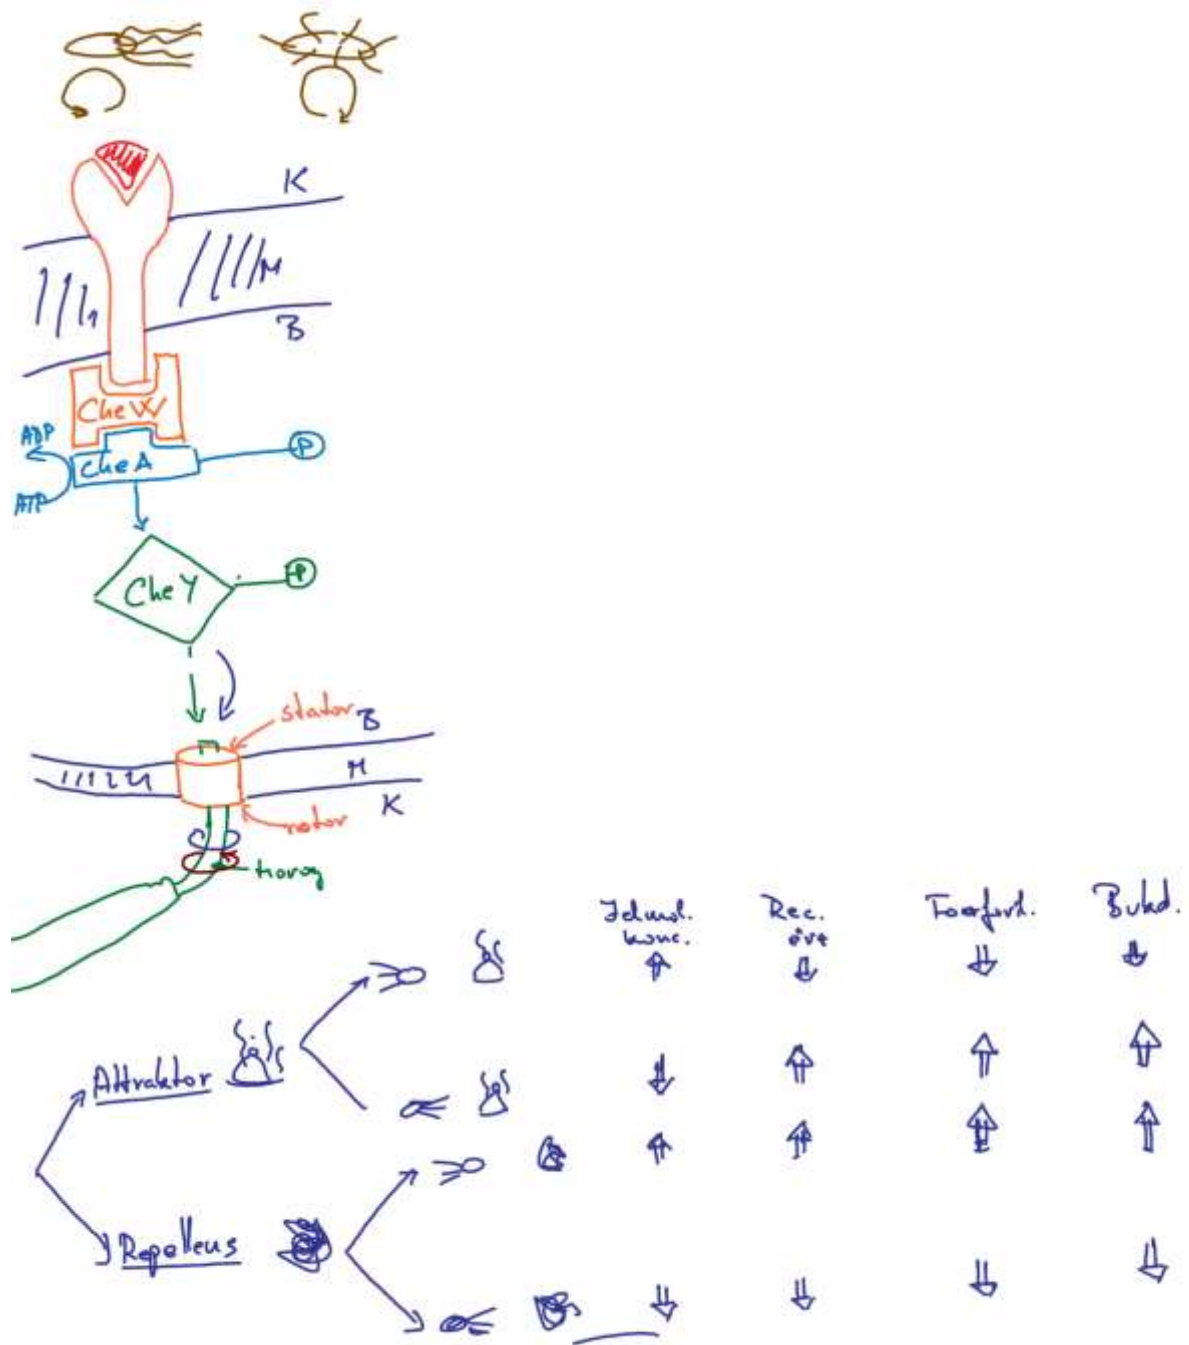 K
M
B
CheW
ADP
CheA
P
ATP
CheY
P
stator
B
M
K
rotor
horog
Jelmol.
konc.
Rec.
Bukd.
Attraktor
Repellens